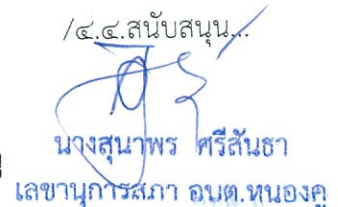 /๔.๔.สนับสนุน...
นางสุนาพร ศรีสันธา
เลขานุการสภา อบต.หนองคู